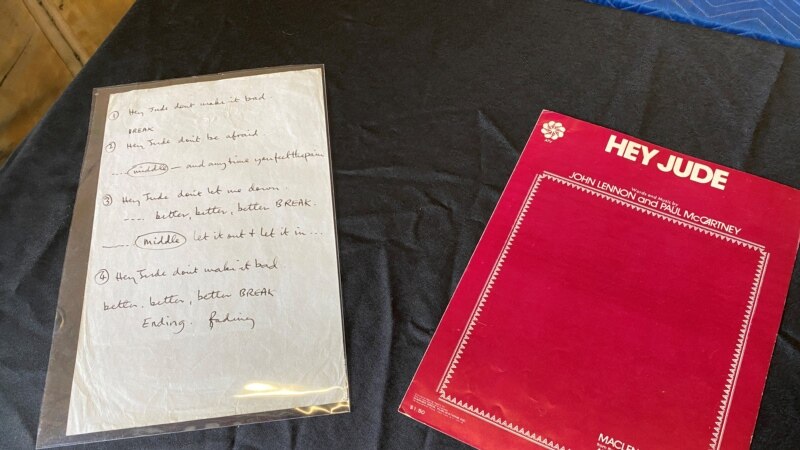 ① Hey Jude dont make it bad.
BREAK
② Hey Jude don't be afraid
.... middle — and anytime you feel the pain
③ Hey Jude don't let me down
---- better, better, better BREAK.
middle let it out & let it in ...
④ Hey Jude dont make it bad
better, better, better BREAK
Ending. fading
HEY JUDE
Words and Music by
JOHN LENNON and PAUL McCARTNEY
$1.50
MACLEN